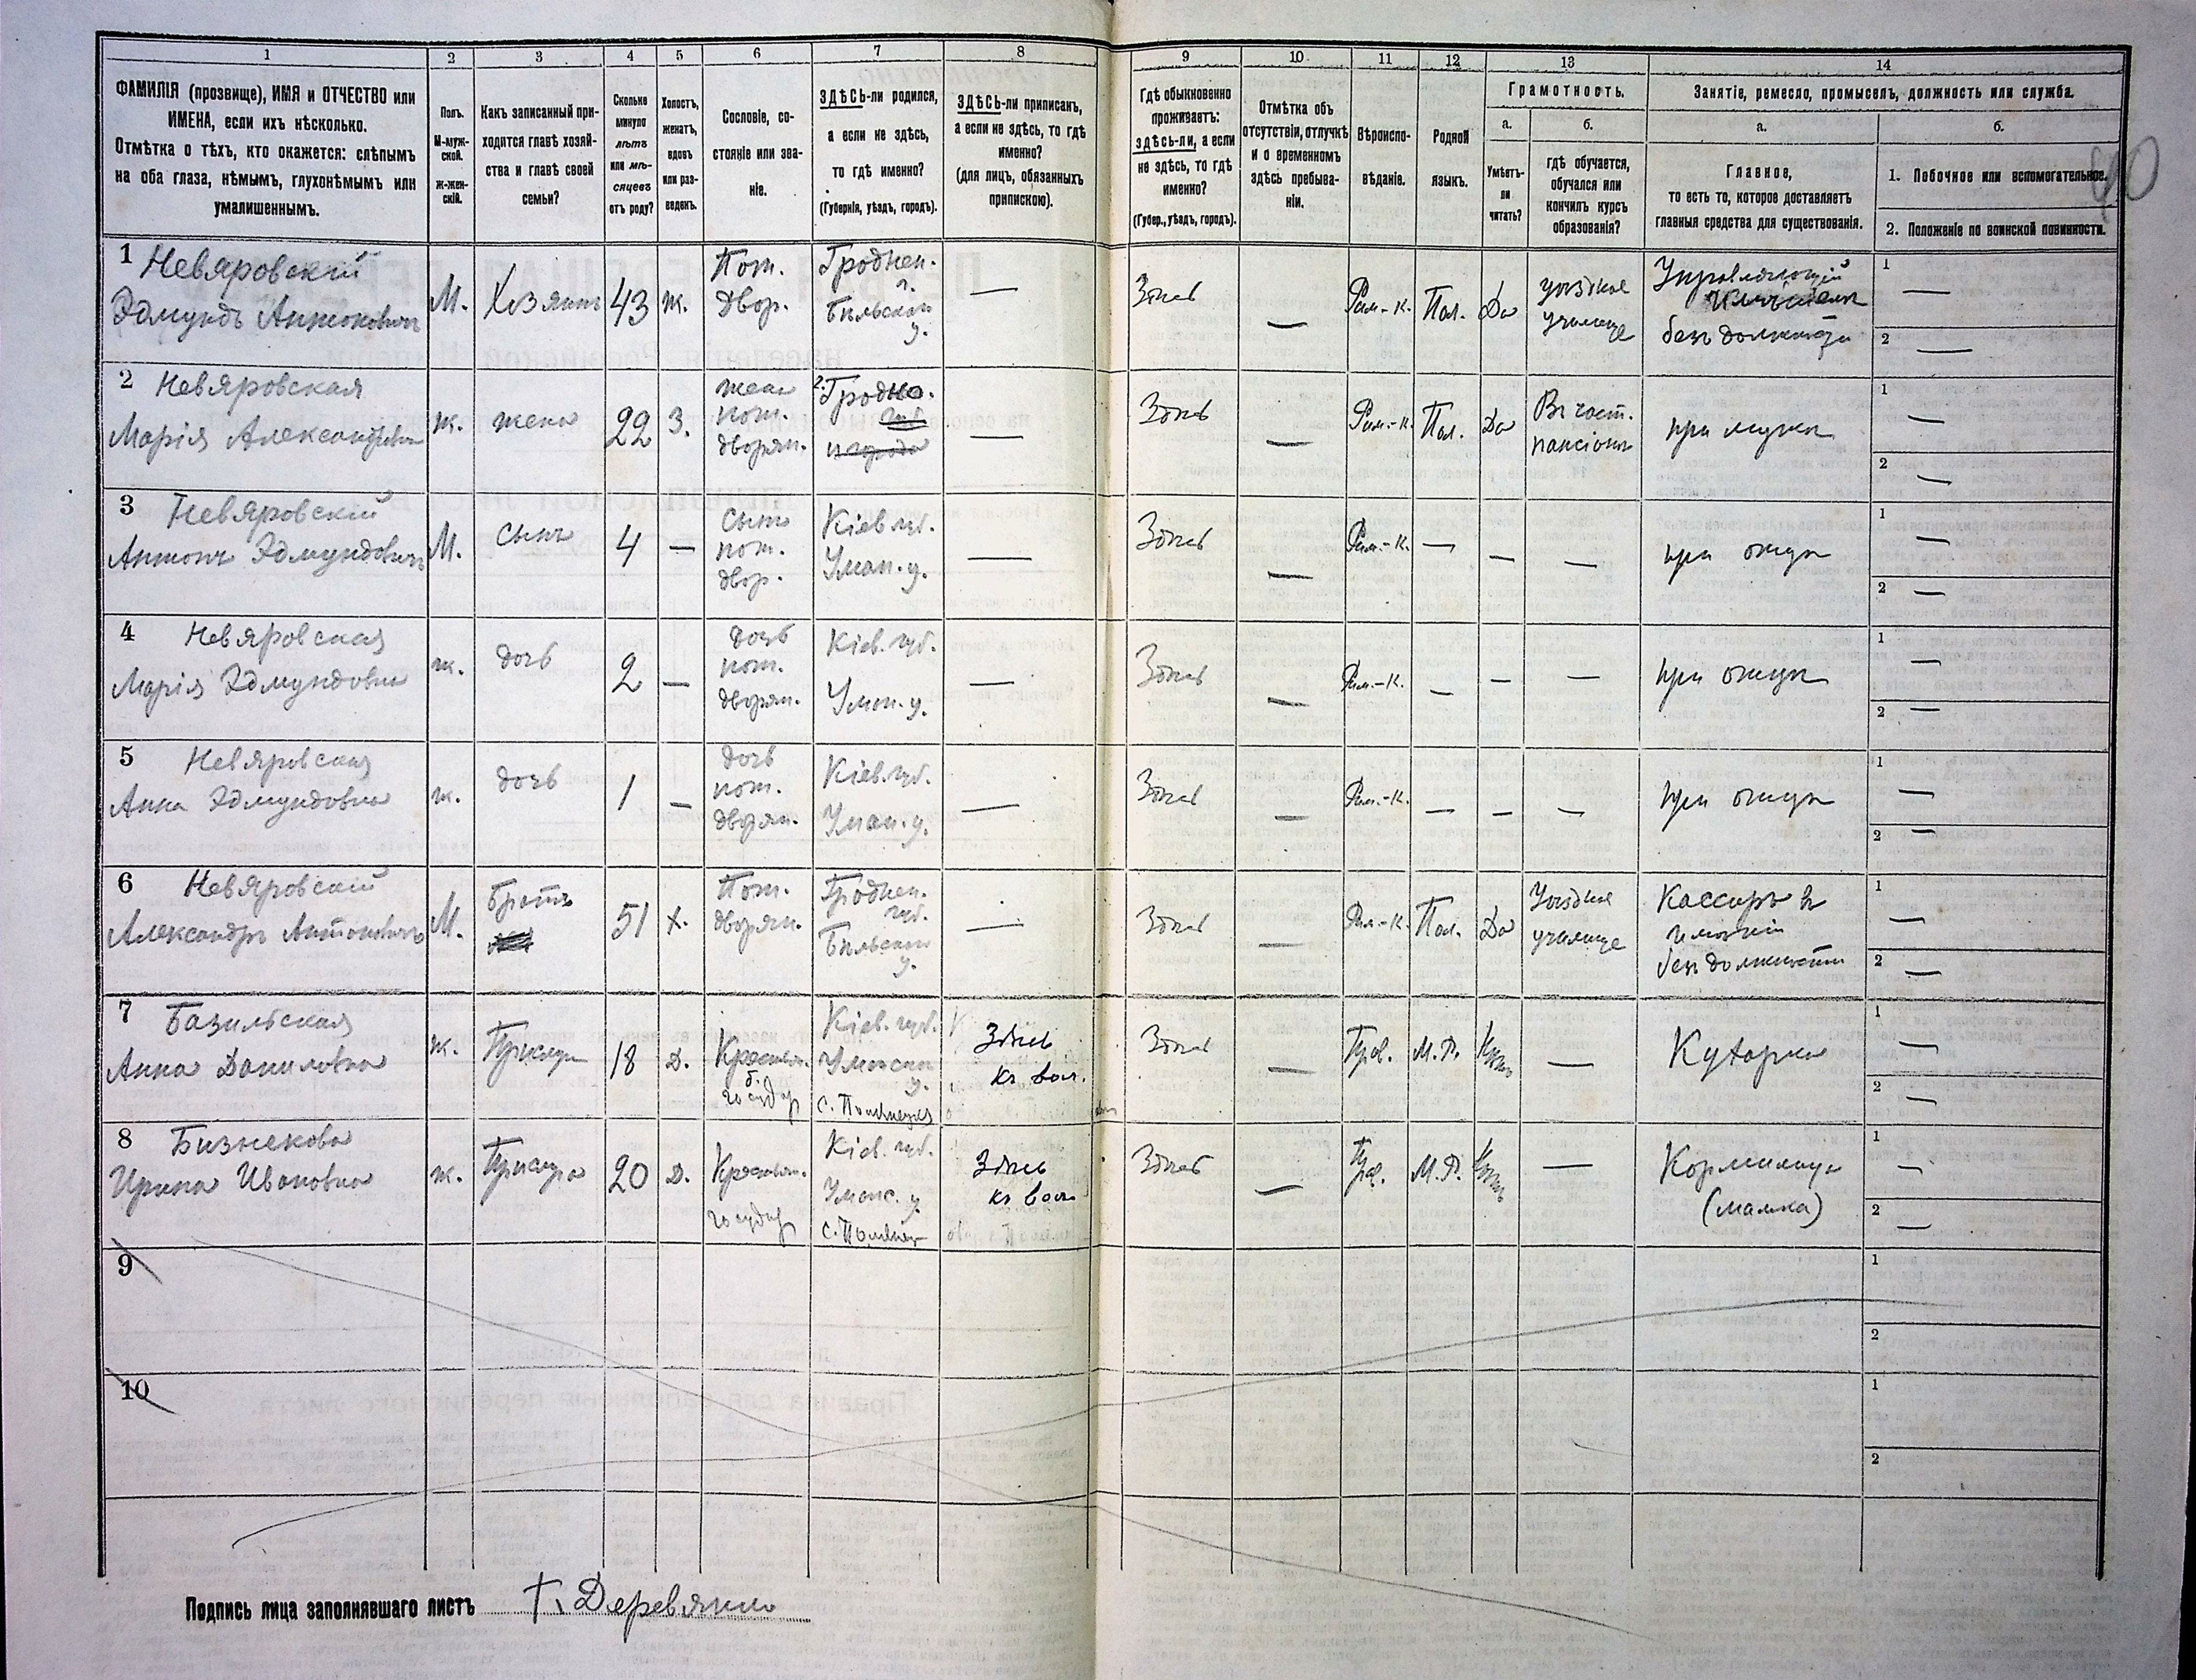 1 2 3 4 5 6 7 8 9 10 11 12 13 14
ФАМИЛІЯ (прозвище), ИМЯ и ОТЧЕСТВО или
ИМЕНА, если ихъ нѣсколько.
Отмѣтка о тѣхъ, кто окажется: слѣпымъ
на оба глаза, нѣмымъ, глухонѣмымъ или
умалишеннымъ.
Полъ.
М-муж-
ской.
ж-жен-
скій.
Какъ записанный при-
ходится главѣ хозяй-
ства и главѣ своей
семьи?
Сколько
минуло
лѣтъ
или мѣ-
сяцевъ
отъ роду?
Холостъ,
женатъ,
вдовъ
или раз-
веденъ.
Сословіе, со-
стояніе или зва-
ніе.
ЗДѢСЬ-ли родился,
а если не здѣсь,
то гдѣ именно?
(Губернія, уѣздъ, городъ).
ЗДѢСЬ-ли приписанъ,
а если не здѣсь, то гдѣ
именно?
(для лицъ, обязанныхъ
припискою).
Гдѣ обыкновенно
проживаетъ:
здѣсь-ли, а если
не здѣсь, то гдѣ
именно?
(Губер., уѣздъ, городъ).
Отмѣтка объ
отсутствіи, отлучкѣ
и о временномъ
здѣсь пребыва-
ніи.
Вѣроиспо-
вѣданіе.
Родной
языкъ.
Грамотность.
а.
Умѣетъ-
ли
читать?
б.
гдѣ обучается,
обучался или
кончилъ курсъ
образованія?
Занятіе, ремесло, промыселъ, должность или служба.
а.
Главное,
то есть то, которое доставляетъ
главныя средства для существованія.
б.
1. Побочное или вспомогательное.
2. Положеніе по воинской повинности.
1 Невяровскій
Эдмундъ Антоновичъ
М.
Хозяинъ
43
ж.
Пот.
Двор.
Гроднен.
г.
Бѣльскаго
у.
—
Здѣсь
—
Рим.-К.
Пол.
Да
уѣздное
училище
Управляющій
безъ должности
1 —
2 —
2 Невяровская
Марія Александровна
ж.
жена
22
З.
жена
пот.
дворян.
г. Гродно.
—
Здѣсь
—
Рим.-К.
Пол.
Да
Въ част.
пансіонѣ
при мужѣ
1 —
2 —
3 Невяровскій
Антонъ Эдмундовичъ
М.
сынъ
4
—
Сынъ
пот.
двор.
Кіев губ.
Уман. у.
—
Здѣсь
—
Рим.-К.
—
—
—
при отцѣ
1 —
2 —
4 Невяровская
Марія Эдмундовна
ж.
дочь
2
—
дочь
пот.
дворян.
Кіев. губ.
Уман. у.
—
Здѣсь
—
Рим.-К.
—
—
—
при отцѣ
1 —
2 —
5 Невяровская
Анна Эдмундовна
ж.
дочь
1
—
дочь
пот.
дворян.
Кіев. губ.
Уман. у.
—
Здѣсь
—
Рим.-К.
—
—
—
при отцѣ
1 —
2 —
6 Невяровскій
Александръ Антоновичъ
М.
Братъ
51
х.
Пот.
дворян.
Гроднен.
губ.
Бѣльскаго
у.
—
Здѣсь
—
Рим.-К.
Пол.
Да
Уѣздное
училище
Кассиръ въ
имѣніи
безъ должности
1 —
2 —
7 Базильская
Анна Даниловна
ж.
Прислуга
18
д.
Крестьян.
б.
государ
Кіев. губ.
Уманскаго
у.
Здѣсь
къ вол.
Здѣсь
—
Прав.
М. Р.
—
Кухарка
1 —
2 —
8 Бизнекова
Ирина Ивановна
ж.
Прислуга
20
д.
Крестьян.
государ
Кіев. губ.
Уманс. у.
Здѣсь
къ вол.
Здѣсь
—
Прав.
М. Р.
—
Кормилица
(мамка)
1 —
2 —
9
1
2
10
1
2
Подпись лица заполнявшаго листъ Г. Деревянко